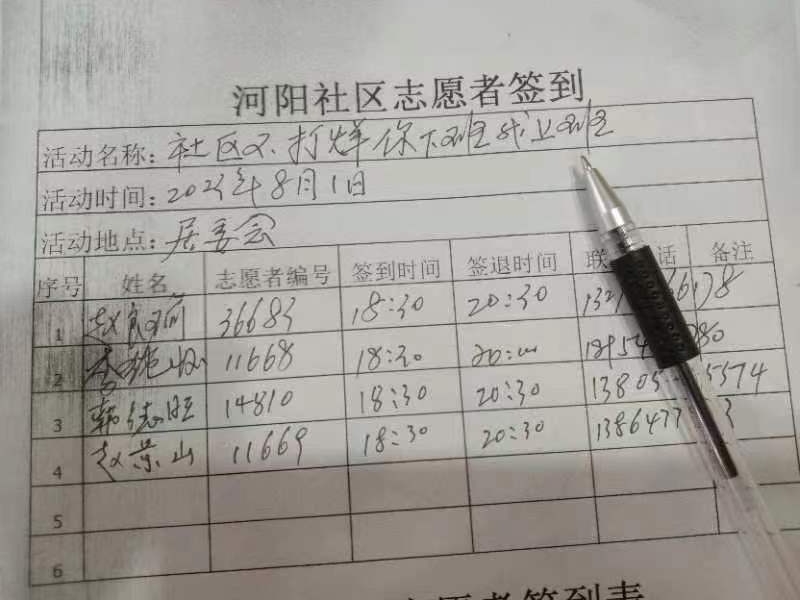 河阳社区志愿者签到
活动名称：社区不打烊你下班我上班
活动时间：2023年8月1日
活动地点：居委会
序号 姓名 志愿者编号 签到时间 签退时间 联 话 备注
1 赵 36683 18:30 20:30 132
2 李 11668 18:30
3 韩德旺 14810 18:30 20:30 13805 5574
4 赵景山 11669 18:30 20:30 1386477 3
5
6
志愿者签到表